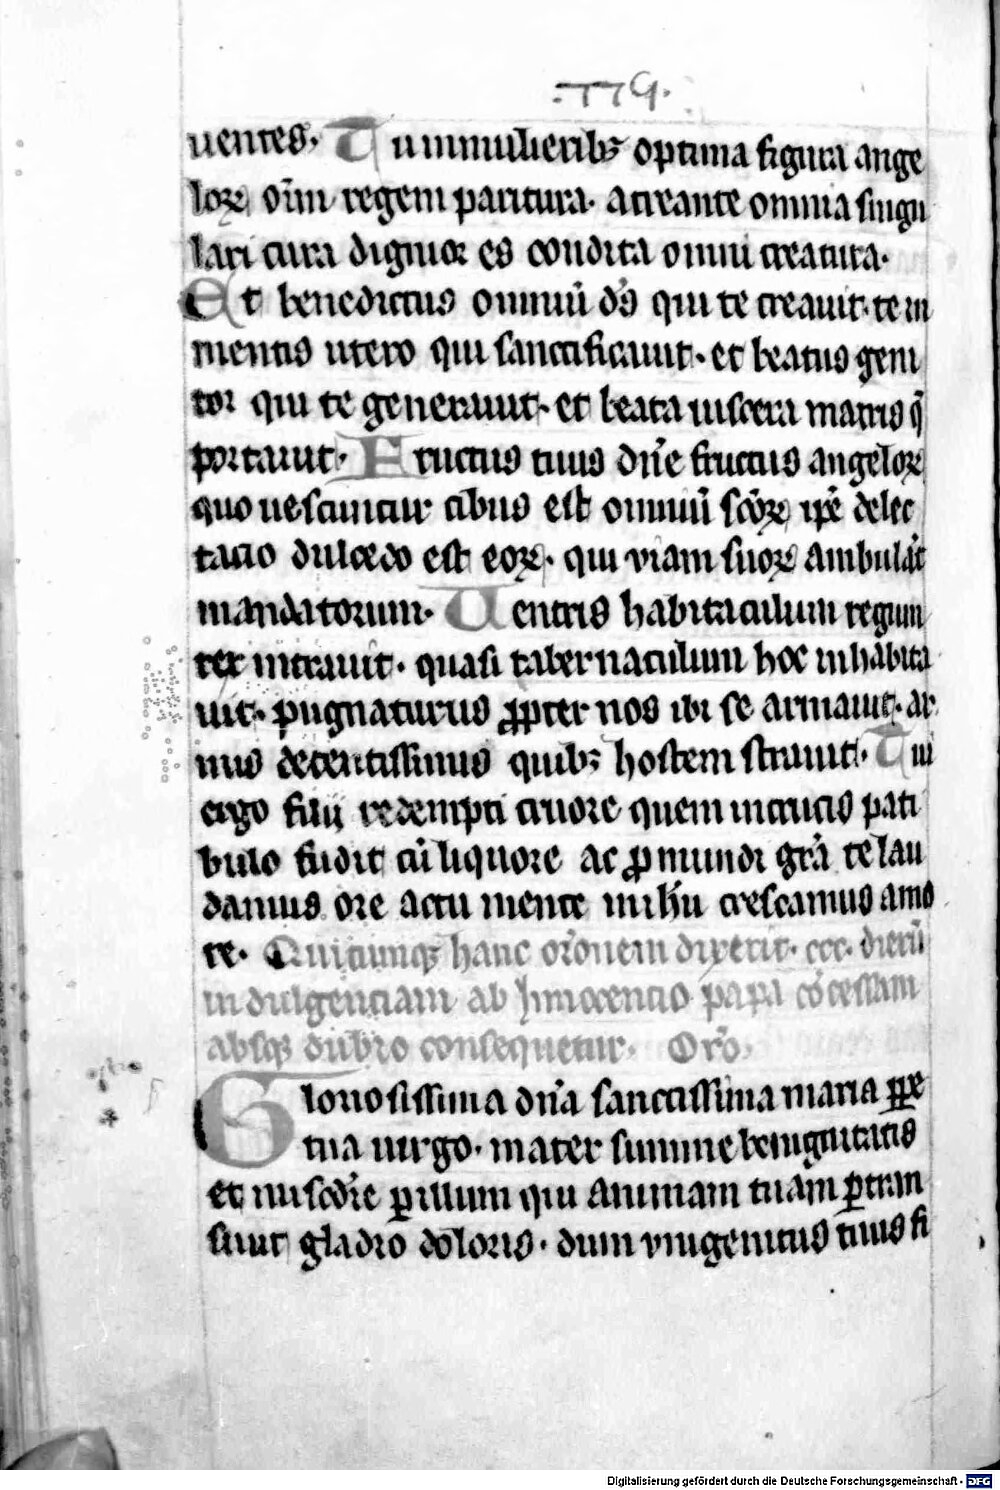 .119.
uentes. Tu inmulieribꝫ optima figura ange
loꝝ oīm regem paritura. acreante omnia singu
lari cura dignior es condita omni creatura.
Et benedictus omniū dꝰs qui te creauit. te in
mentis utero qui sanctificauit. et beatus geni
tor qui te generauit. et beata uiscera matris q̄
portauit. Fructus tuus dn̄e fructus angeloꝝ
quo uescuntur cibus est omniū sc̄oꝝ ip̄e delec
tatio dulcedo est eoꝝ. qui viam suoꝝ ambulāt
mandatorum. Uentris habitaculum regum
rex intrauit. quasi tabernaculum hoc inhabita
uit. pugnaturus ꝓpter nos ibi se armauit. ar
mis decentissimis quibꝫ hostem strauit. Tui
ergo filij redempti cruore quem incrucis pati
bulo fudit cū liquore ac ꝓ mundi grā te lau
damus ore actu mente in ih̄u crescamus amo
re. Quicunqꝫ hanc oronem dixerit. ccc. dierū
indulgenciam ab Innocencio papa cōcessam
absqꝫ dubio consequetur. Oro.
Gloriosissima dn̄a sanctissima maria ꝑpe
tua uirgo. mater summe benignitatis
et mis̄cdie ꝑ illum qui animam tuam ꝑtran
siuit gladio doloris. dum vnigenitus tuus fi
Digitalisierung gefördert durch die Deutsche Forschungsgemeinschaft - DFG